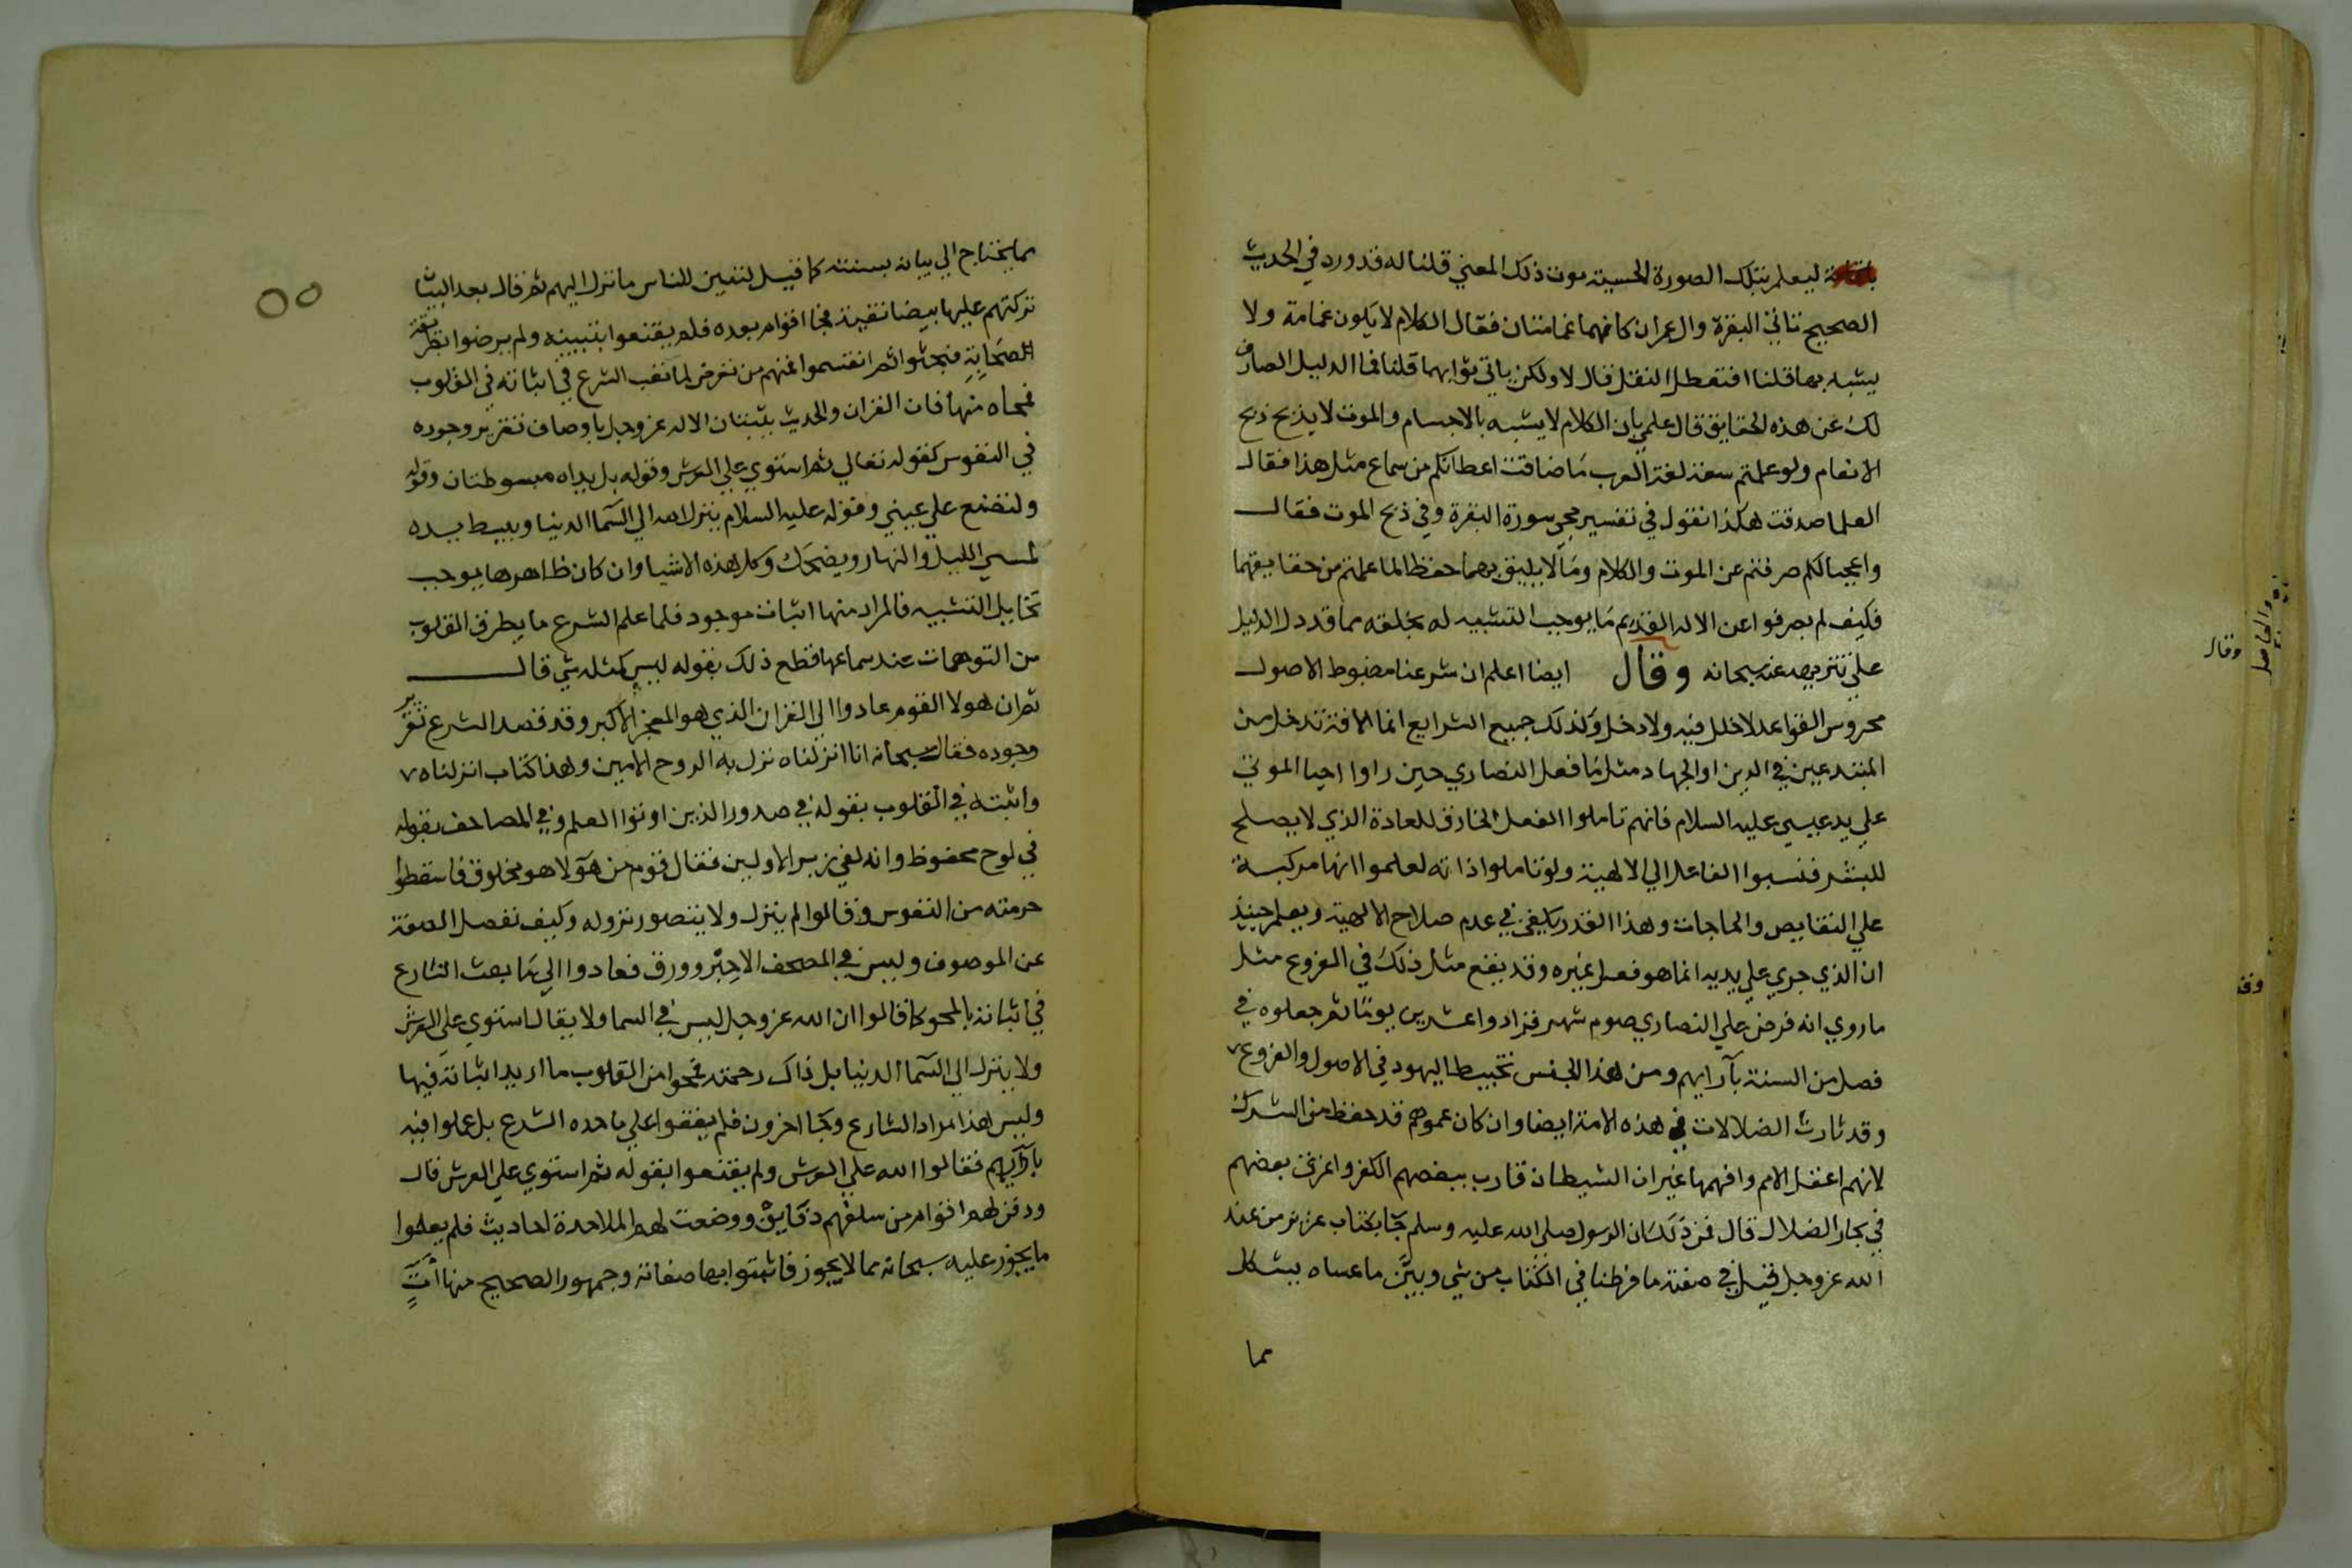 ليعلم بتلك الصورة الحسية موت ذلك المعني قلنا له قد ورد في الحديث
الصحيح تاتي البقرة وال عمران كانهما غمامتان فقال الكلام لا يكون غمامة ولا
يشبه بها قلنا افتعطل النقل قال لا ولكن ياتي ثوابهما قلنا فما الدليل الصارف
لك عن هذه الحقايق قال علمي بان الكلام لا يشبه بالاجسام والموت لا يذبح ذبح
الانعام ولو علمتم سعة لغة العرب ما ضاقت اعطانكم من سماع مثل هذا فقال
العلما صدقت هكذا نقول في تفسير مجي سورة البقرة وفي ذبح الموت فقال
واعجبا لكم صرفتم عن الموت والكلام وما لا يليق بهما حفظا لما علمتم من حقايقهما
فكيف لم يصرفوا عن الاله القديم ما يوجب التشبيه له بخلقه مما قد دل الدليل
علي تنزيهه عنه سبحانه وقال ايضا اعلم ان شرعنا مضبوط الاصول
محروس القواعد لا خلل فيه ولا دخل وكذلك جميع الشرايع انما الافة تدخل من
المبتدعين في الدين او الجهاد مثل ما فعل النصاري حين راوا احيا الموتي
علي يد عيسي عليه السلام فانهم تاملوا الفعل الخارق للعادة الذي لا يصلح
للبشر فنسبوا الفاعل الي الالهية ولو تاملوا ذاته لعلموا انها مركبة
علي النقايص والحاجات وهذا القدر يكفي في عدم صلاح الالهية ويعلم حينيذ
ان الذي جري علي يديه انما هو فعل غيره وقد يقع مثل ذلك في الفروع مثل
ما روي انه فرض علي النصاري صوم شهر فزادوا عشرين يوما ثم جعلوه في
فصل من السنة بآرايهم ومن هذا الجنس تخبيط اليهود في الاصول والفروع
وقد ثارت الضلالات في هذه الامة ايضا وان كان عمومهم قد حفظ من الشرك
لانهم اعقل الامم وافهمها غير ان الشيطان قارب ببعضهم الكفر واغرق بعضهم
في بحار الضلال قال فمن ذلك ان الرسول صلي الله عليه وسلم جا بكتاب عزيز من عند
الله عز وجل قيل في صفته ما فرطنا في الكتاب من شي وبين ما عساه يشكل
مما
مما يحتاج الي بيانه بسنته كما قيل لتبين للناس ما نزل اليهم ثم قال بعد البيان
تركتهم عليها بيضا نقية فجا اقوام بعده فلم يقنعوا بتبيينه ولم يرضوا بطريقة
الصحابة فبحثوا ثم انقسموا فمنهم من تعرض لما تعب الشرع في اثباته في القلوب
فمحاه منها فان القران والحديث يثبتان الاله عز وجل باوصاف تقرير وجوده
في النفوس كقوله تعالي ثم استوي علي العرش وقوله بل يداه مبسوطتان وقوله
ولتصنع علي عيني وقوله عليه السلام ينزل الله الي السما الدنيا ويبسط يده
لمسي الليل والنهار ويضحك وكل هذه الاشيا وان كان ظاهرها يوجب
تخايل التشبيه فالمراد منها اثبات موجود فلما علم الشرع ما يطرق القلوب
من التوهمات عند سماعها قطع ذلك بقوله ليس كمثله شي قال
ثم ان هولا القوم عادوا الي القران الذي هو المعجز الاكبر وقد قصد الشرع تقرير
وجوده فقال سبحانه انا انزلناه نزل به الروح الامين وهذا كتاب انزلناه
واثبته في القلوب بقوله في صدور الذين اوتوا العلم وفي المصاحف بقوله
في لوح محفوظ وانه لفي زبر الاولين فقال قوم من هولا هو مخلوق فاسقطوا
حرمته من النفوس وقالوا لم ينزل ولا يتصور نزوله وكيف تفصل الصفة
عن الموصوف وليس في المصحف الا حبر وورق فعادوا الي ما بعث الشارع
في اثباته بالمحو كما قالوا ان الله عز وجل ليس في السما ولا يقال استوي علي العرش
ولا ينزل الي السما الدنيا بل ذاك رحمته فمحوا من القلوب ما اريد اثباته فيها
وليس هذا مراد الشارع وجا اخرون فلم يقفوا علي ما حده الشرع بل عملوا فيه
بارآيهم فقالوا الله علي العرش ولم يقنعوا بقوله ثم استوي علي العرش قال
ودفن لهم اقوام من سلفهم دقايق ووضعت لهم الملاحدة احاديث فلم يعلموا
ما يجوز عليه سبحانه مما لا يجوز فاثبتوا بها صفاته وجمهور الصحيح منها آت